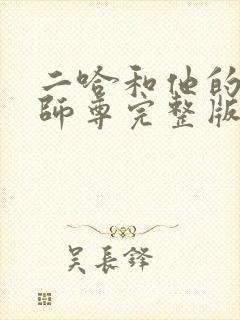 二哈和他的
師尊完整版
吴長鋒